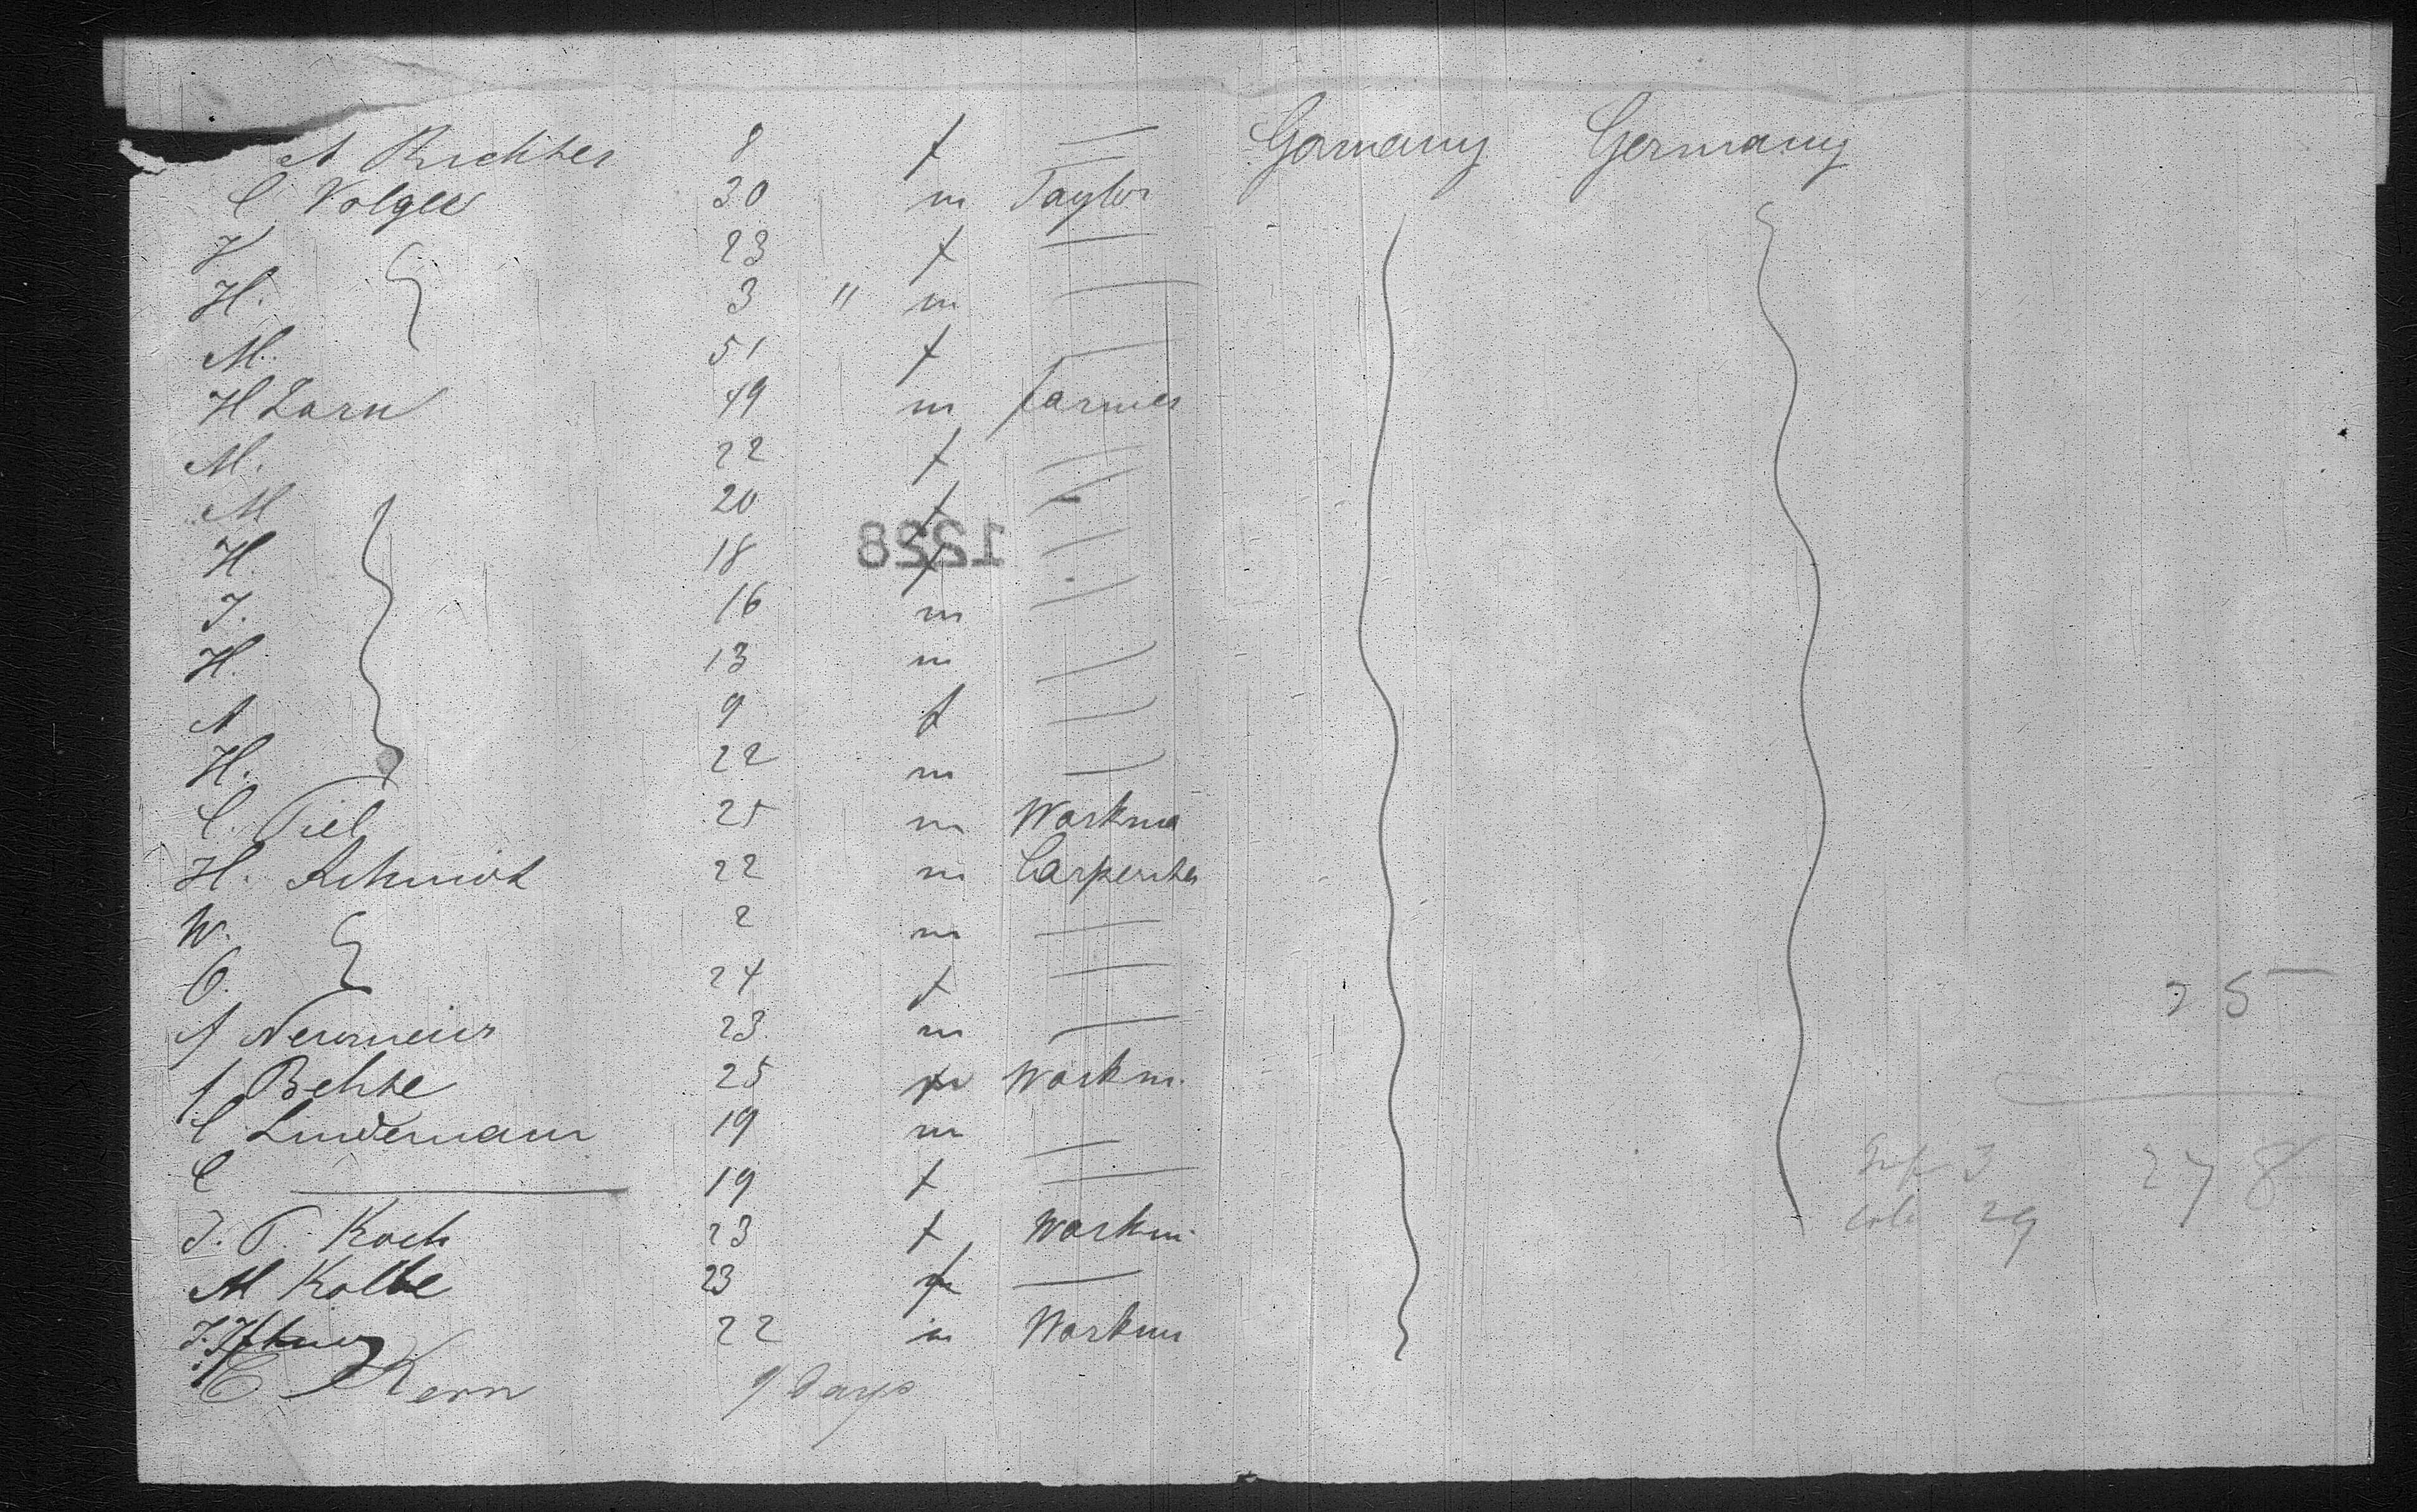 A Richter 8 f — Germany Germany
C Volger 30 m Taylor
23 f —
H. 3 " m —
M. 51 f —
H Zorn 49 m farmer
M. 22 f —
M 20 f —
H. 18 f —
1228
J. 16 m —
H. 13 m —
A 9 f —
H. 22 m —
C. Piel 25 m Workma
H. Schmidt 22 m Carpenter
W. 2 m —
O. 24 f —
A Neumeier 23 m — 25
Behte 25 m Workm.
C Lindemann 19 m —
C — 19 f — Inf 3 278
J. P. Koch 23 f Workm. 29
M Kolbe 23 —
22 m Workm
C Kern 9 Days